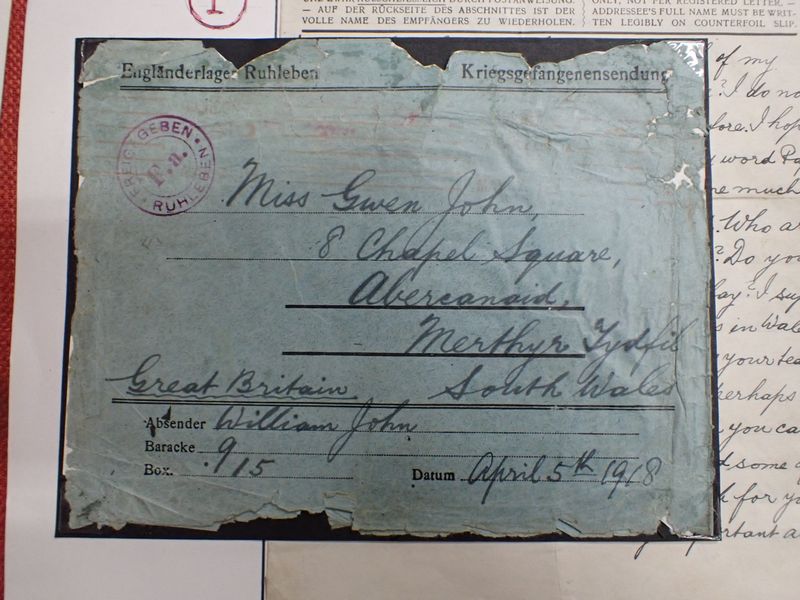 — AUF DER RÜCKSEITE DES ABSCHNITTES IST DER
VOLLE NAME DES EMPFÄNGERS ZU WIEDERHOLEN.
ONLY, NOT PER REGISTERED LETTER. —
ADDRESSEE'S FULL NAME MUST BE WRIT-
TEN LEGIBLY ON COUNTERFOIL SLIP.
Engländerlager Ruhleben
Kriegsgefangenensendung
FREIGEGEBEN
F.a.
RUHLEBEN
Miss Gwen John,
8 Chapel Square,
Abercanaid,
Merthyr Tydfil
Great Britain South Wales
Absender William John
Baracke 9/15
Box.
Datum April 5th 1918
of my
? I do no
fore. I hop
word
me much
. Who ar
? Do you
day? I
s in Wal
your tea
perhaps
you ca
some
for yo